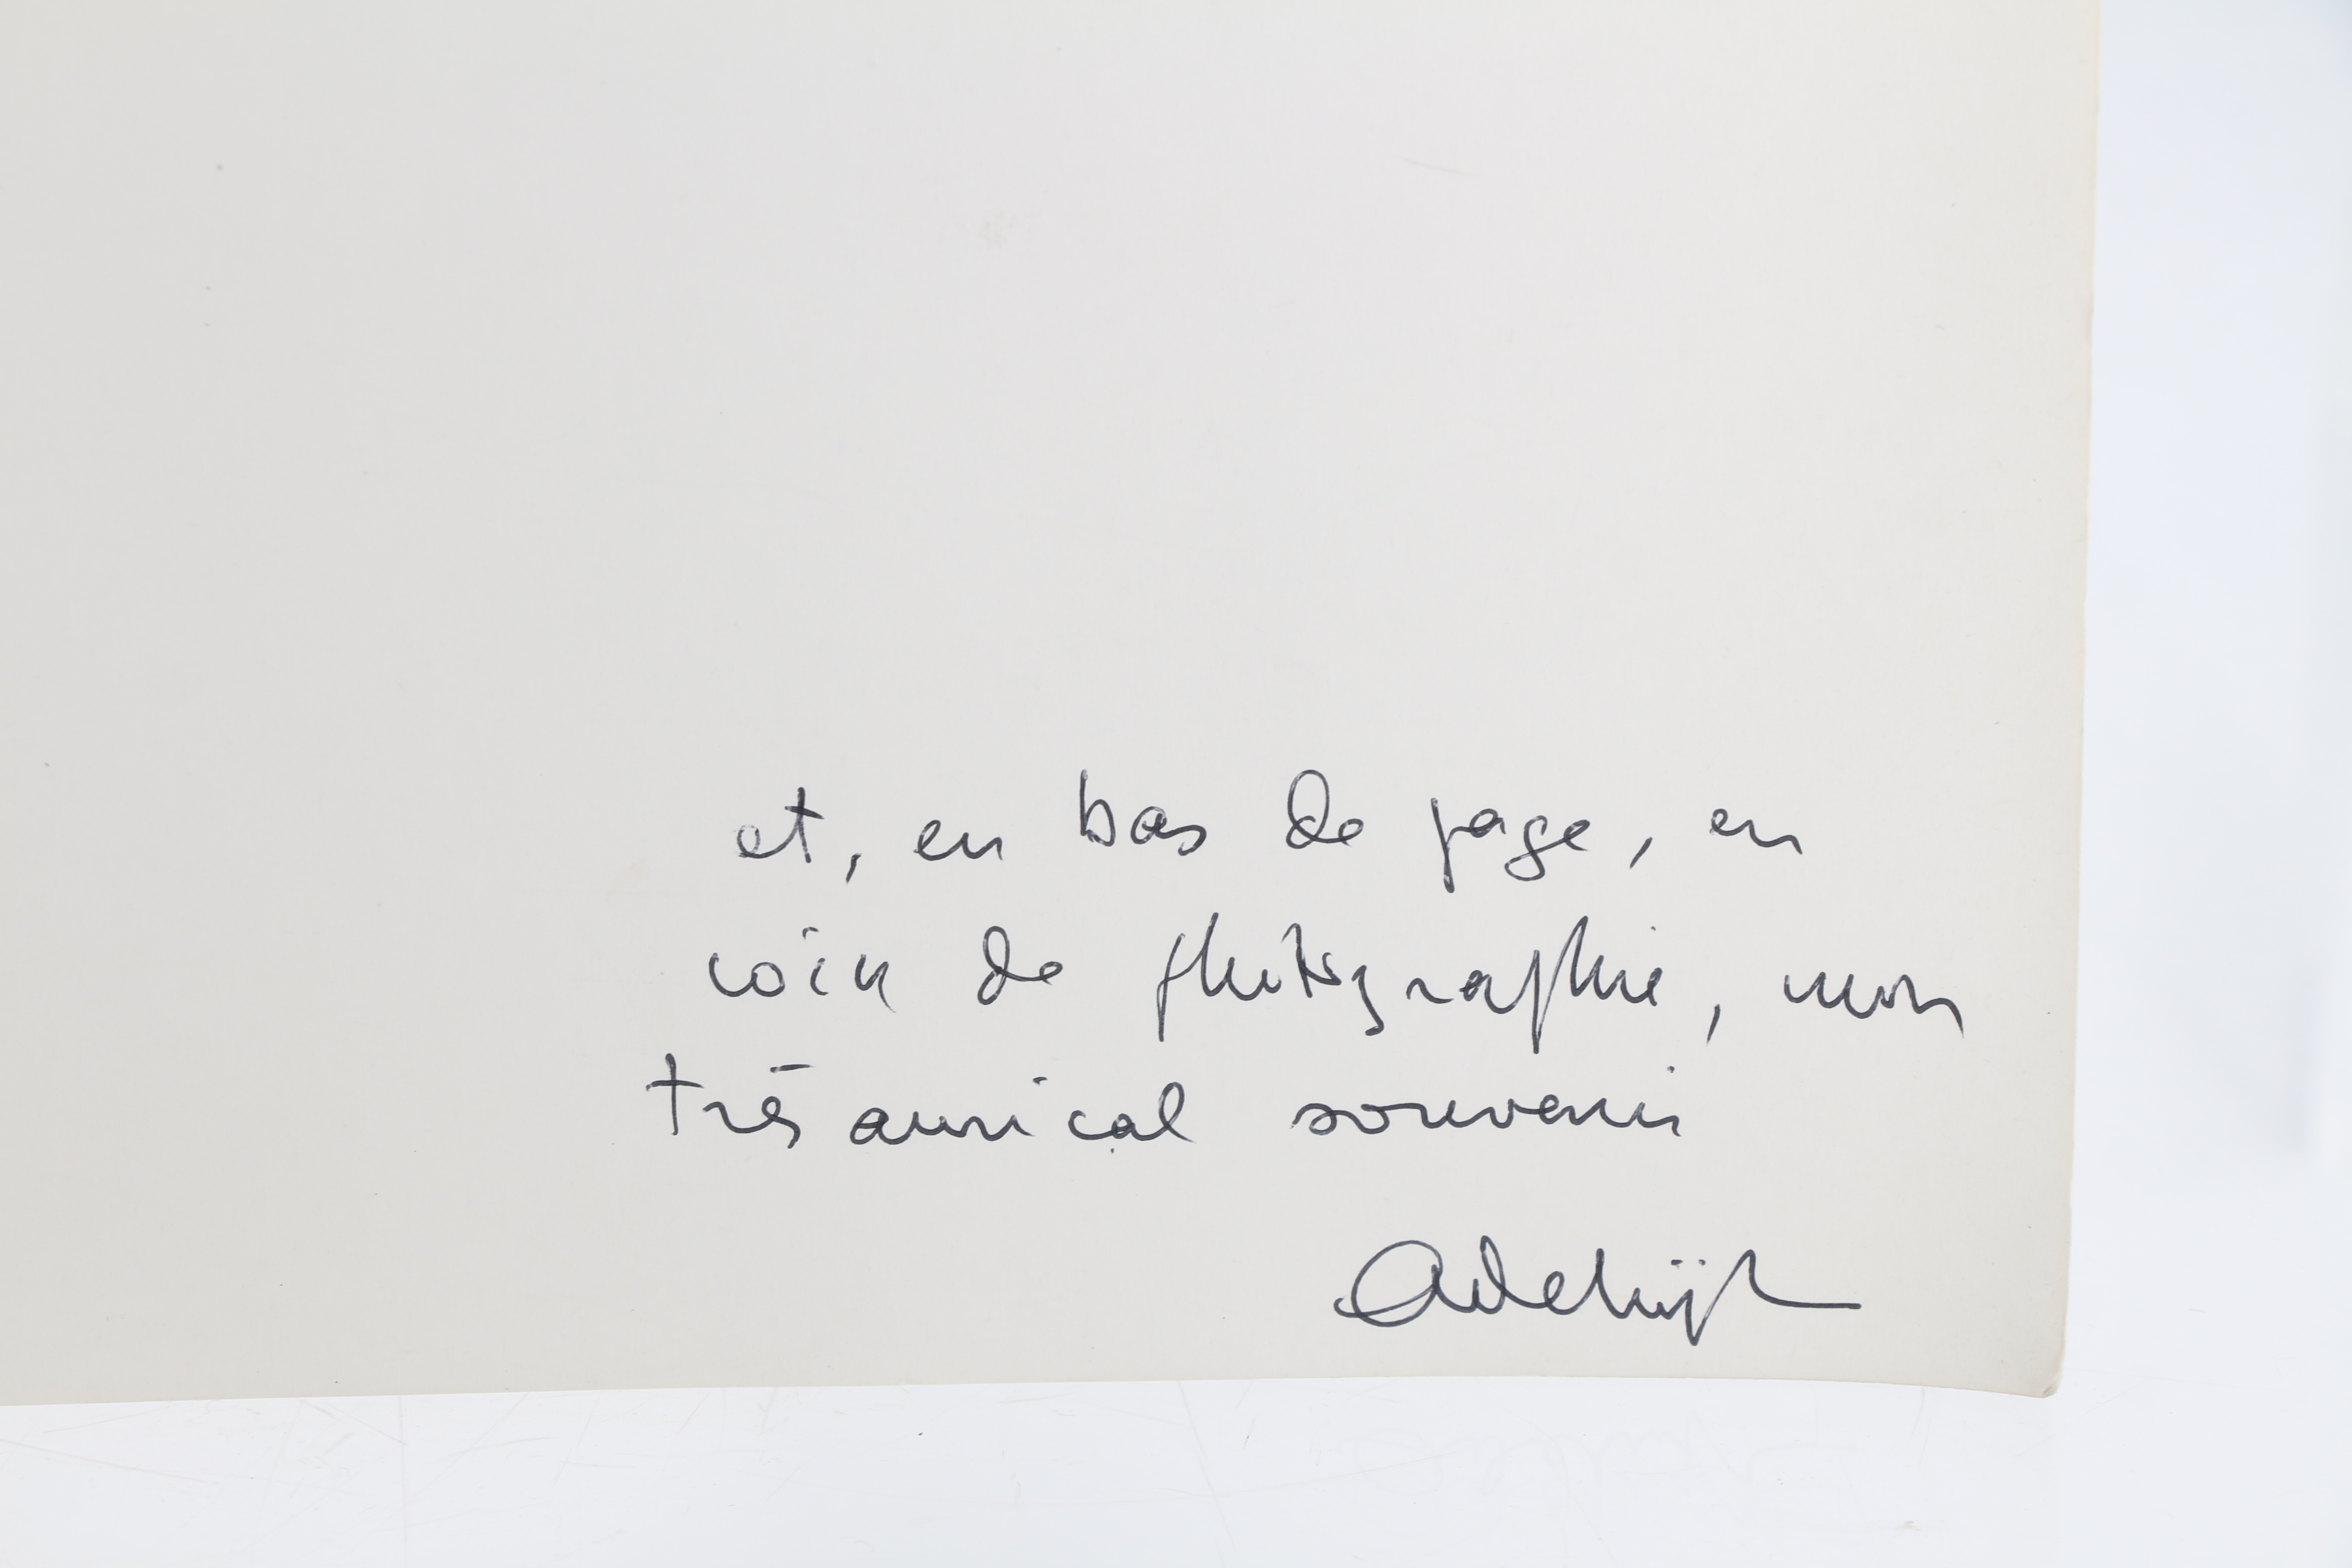 et, en bas de page, en
coin de photographie, mon
très amical souvenir